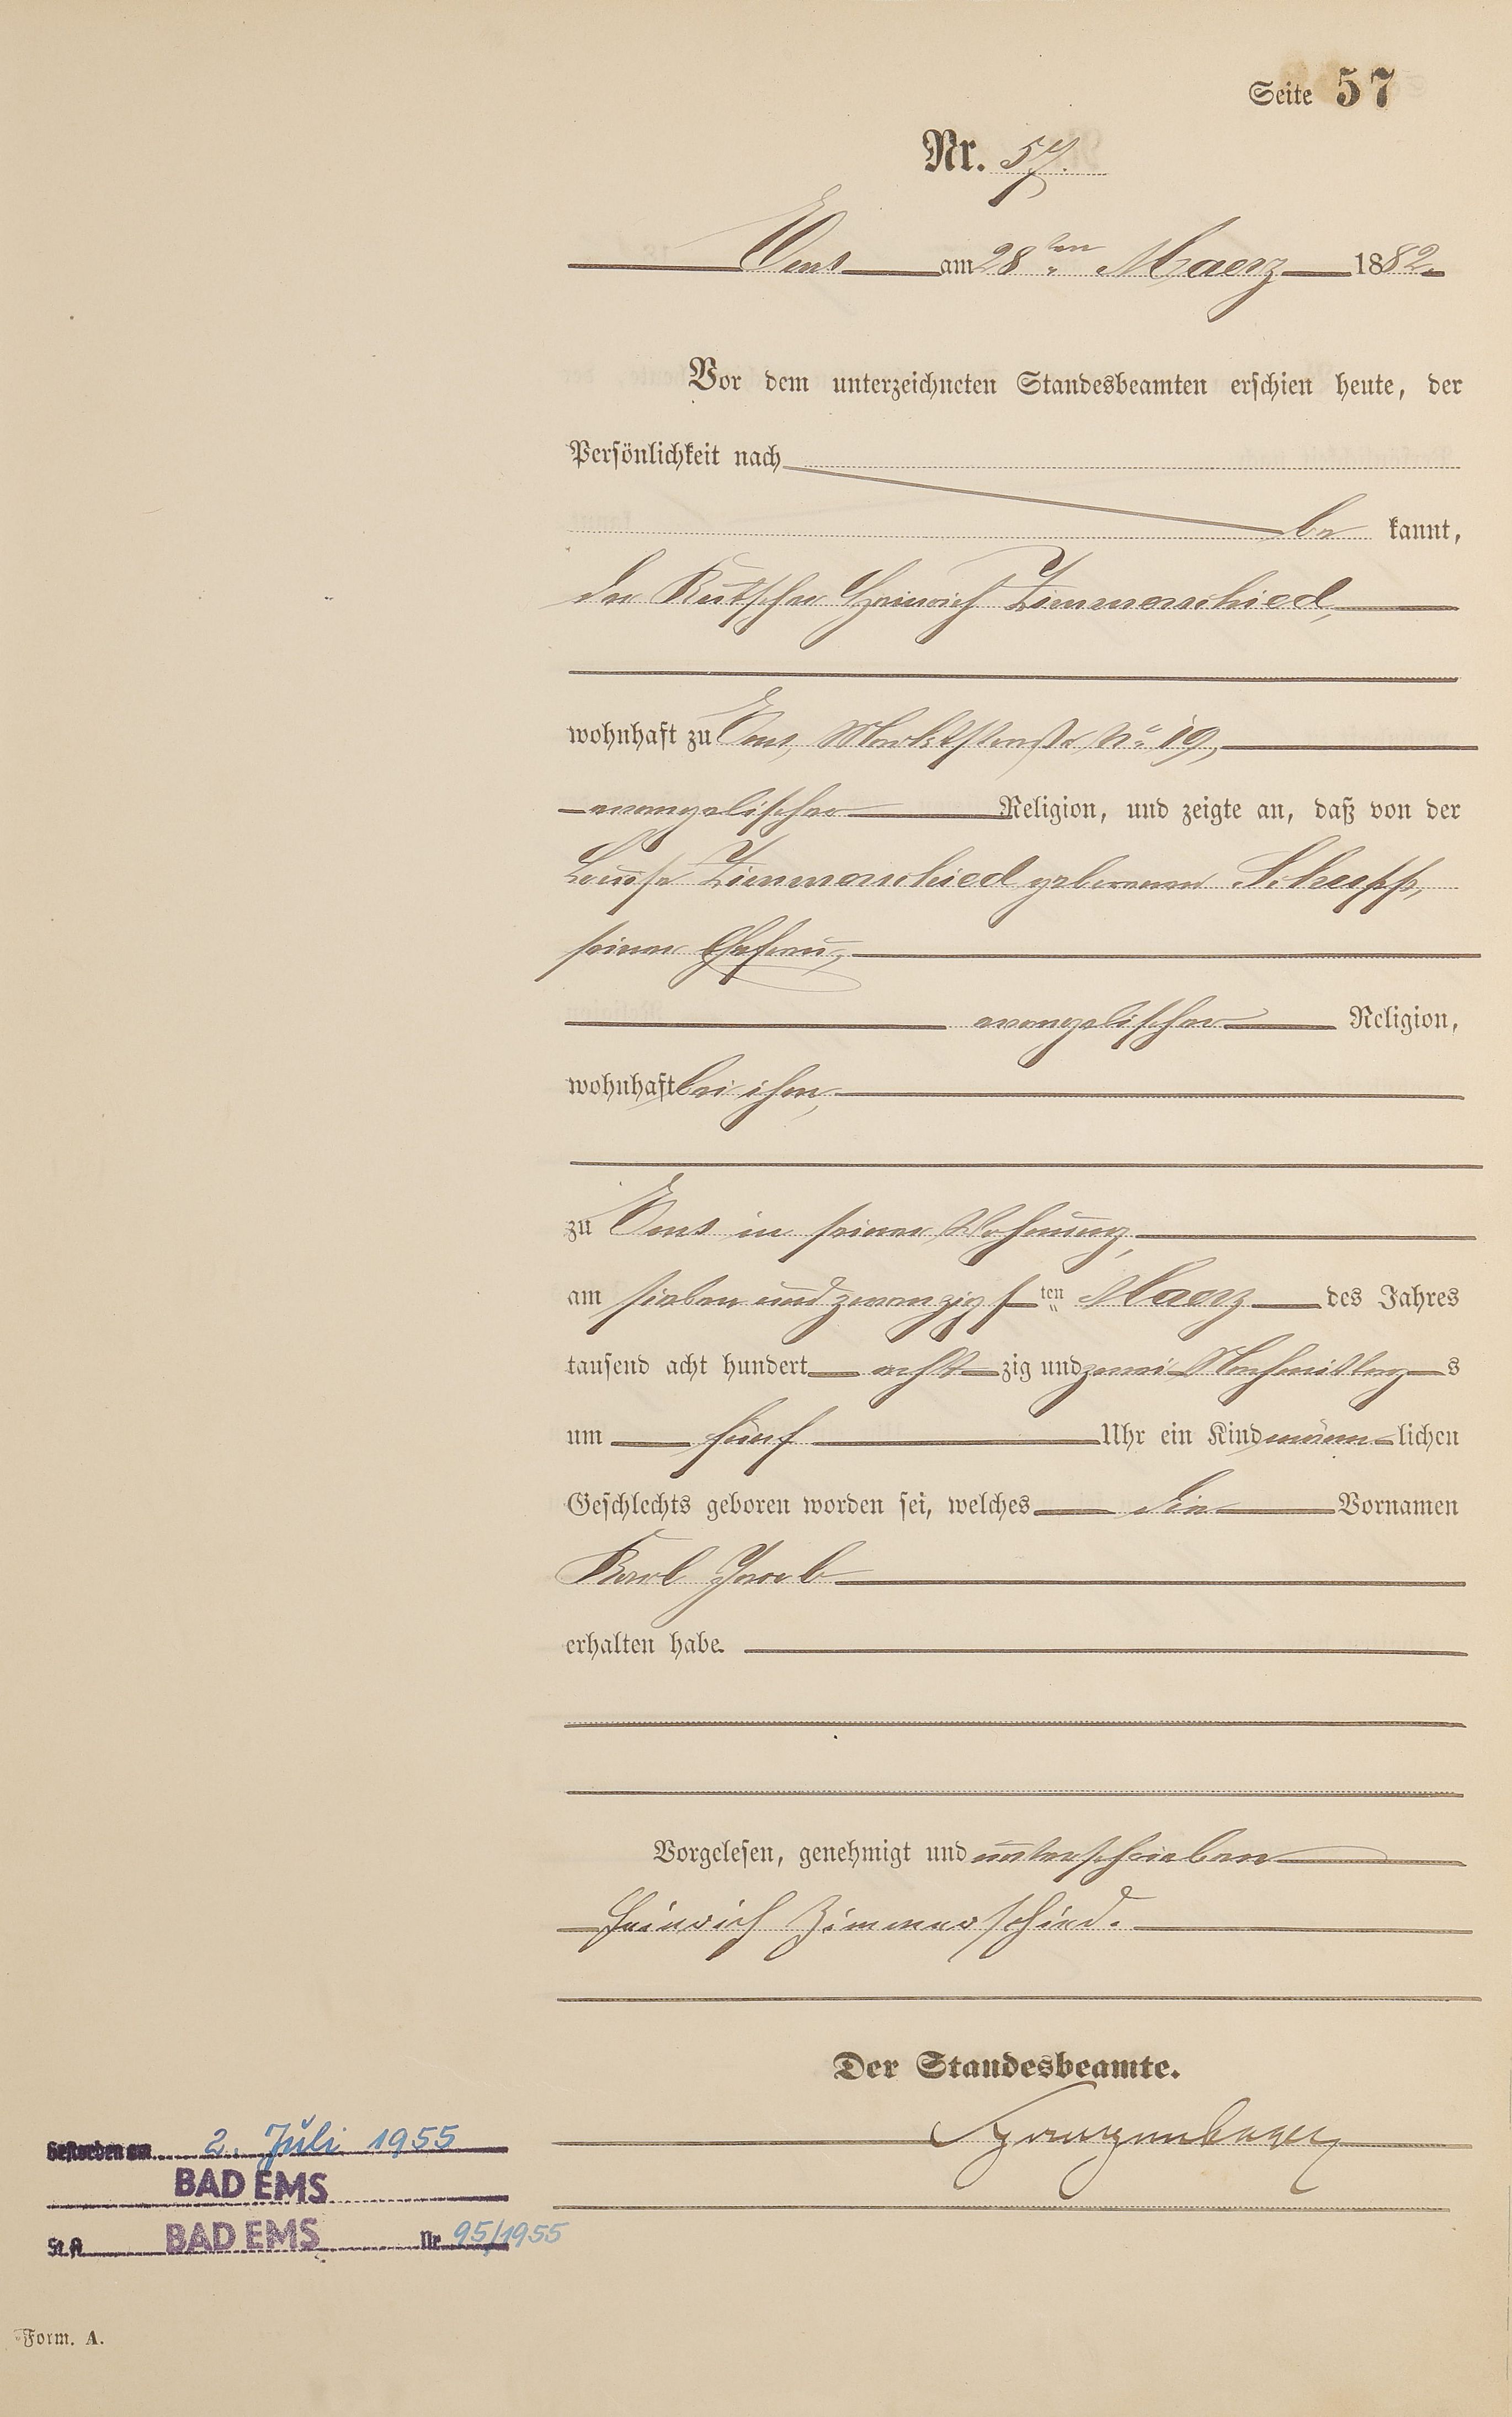 Seite 57
Nr. 57.
Ems am 28ten Maerz 1882.
Vor dem unterzeichneten Standesbeamten erschien heute, der
Persönlichkeit nach
be kannt,
der Kutscher Heinrich Zimmerschied,
wohnhaft zu Ems, Marktstraße No 19,
evangelischer Religion, und zeigte an, daß von der
Louise Zimmerschied geborenen Schupp,
seiner Ehefrau,
evangelischer Religion,
wohnhaft bei ihm,
zu Ems in seiner Wohnung,
am sieben und zwanzigsten Maerz des Jahres
tausend acht hundert acht zig und zwei Nachmittags
um fünf Uhr ein Kind männ lichen
Geschlechts geboren worden sei, welches die Vornamen
Karl Jacob
erhalten habe.
Vorgelesen, genehmigt und unterschrieben
Heinrich Zimmerschied.
Der Standesbeamte.
Gestorben am 2. Juli 1955
BAD EMS
St.A. BAD EMS Nr. 95/1955
Form. A.